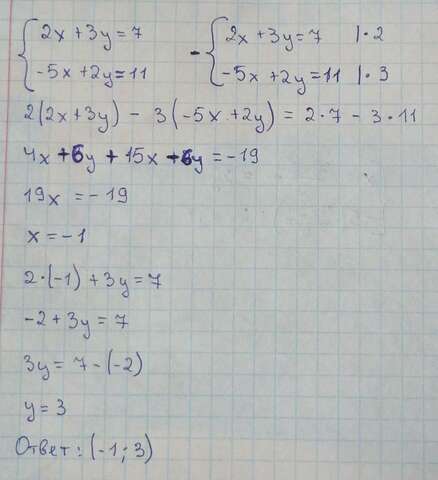 { 2x + 3y = 7 - { 2x + 3y = 7 | · 2
{ -5x + 2y = 11 { -5x + 2y = 11 | · 3
2(2x + 3y) - 3(-5x + 2y) = 2 · 7 - 3 · 11
4x + 6y + 15x - 6y = -19
19x = -19
x = -1
2 · (-1) + 3y = 7
-2 + 3y = 7
3y = 7 - (-2)
y = 3
Ответ: (-1; 3)